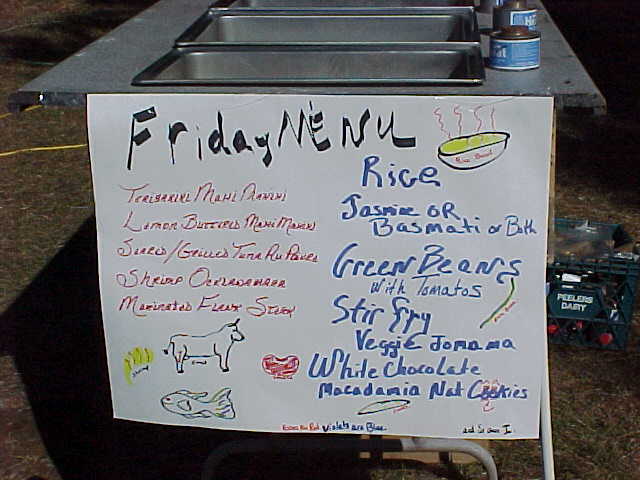 Friday MENU
Rice Bowl
Teriyakiki Mahi Mahini
Lemon Buttered Mahi Mahini
Seared/Grilled Tuna Au
Shrimp
Marinated Flank Steak
Rice
Jasmine OR
Basmati or Both
Green Beans
With Tomatos
Stir Fry
Veggie Jomama
White Chocolate
Macadamia Nut Cookies
Shrimp
Roses are Red Violets are Blue
and So am I.
PEELERS
DAIRY